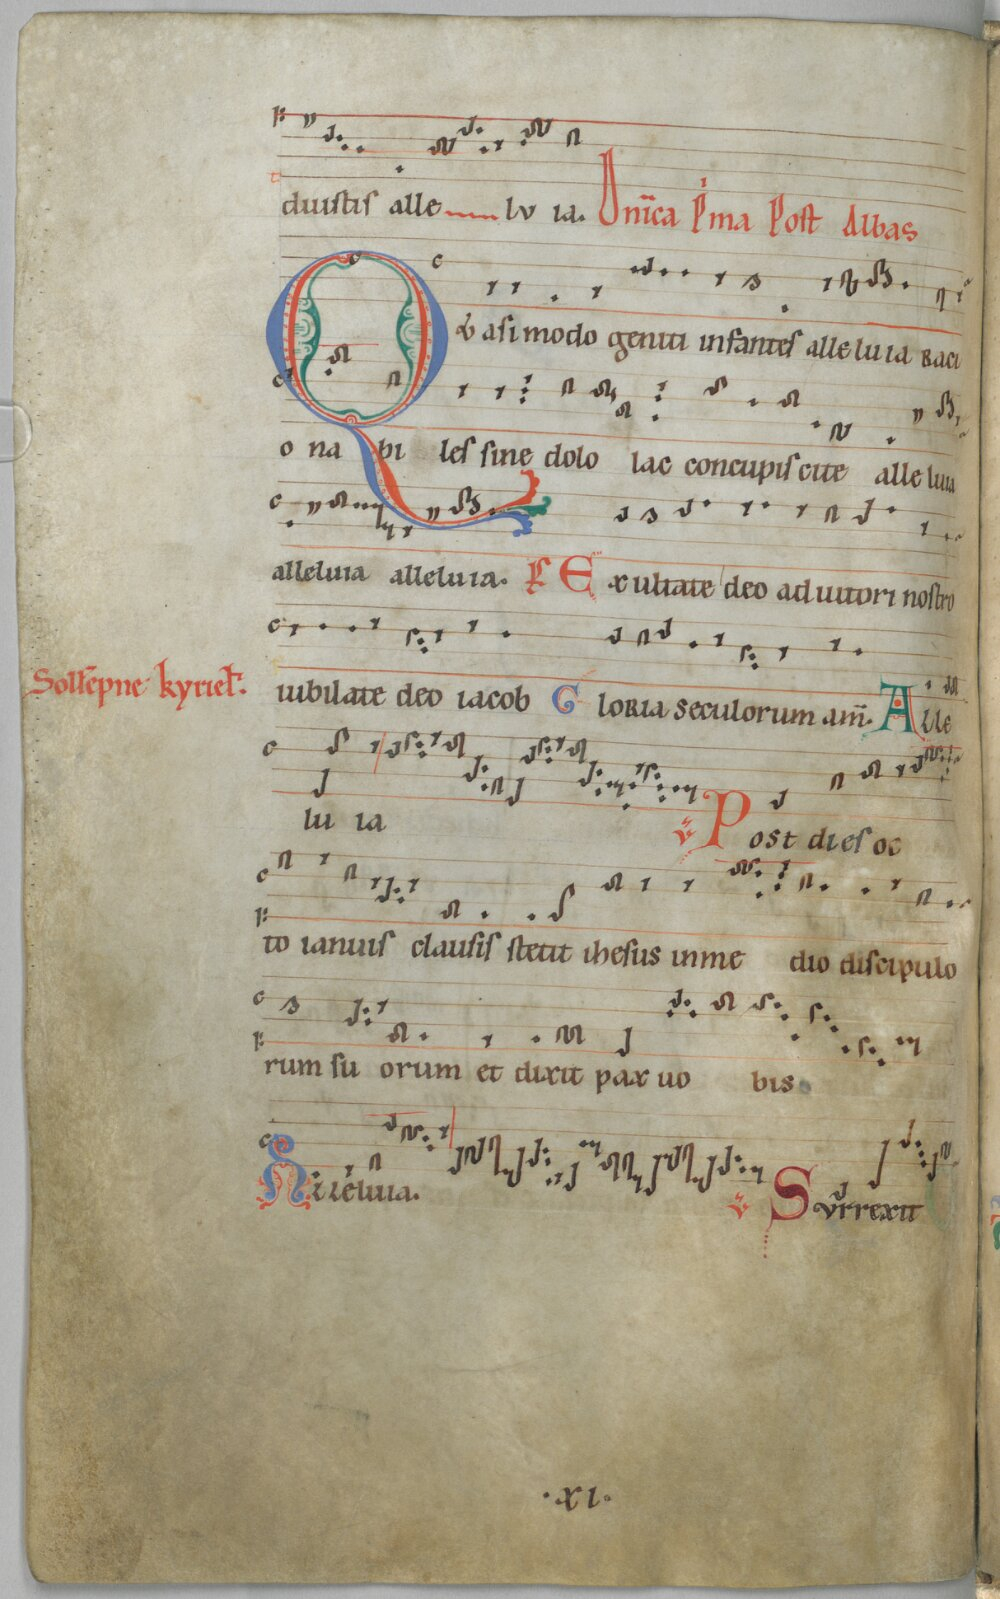 duistis alle lv ia. Dnica P'ma Post Albas
Qvasimodo geniti infantes alleluia Raci
o na bi les sine dolo lac concupiscite alle luia
alleluia alleluia. Ps Exultate deo adiutori nostro
Sollepne kyriel'.
iubilate deo iacob Gloria seculorum am. Alle
lu ia V Post dies oc
to ianuis clausis stetit ihesus inme dio discipulo
rum su orum et dixit pax uo bis
Alleluia. V Svrrexit
.xi.